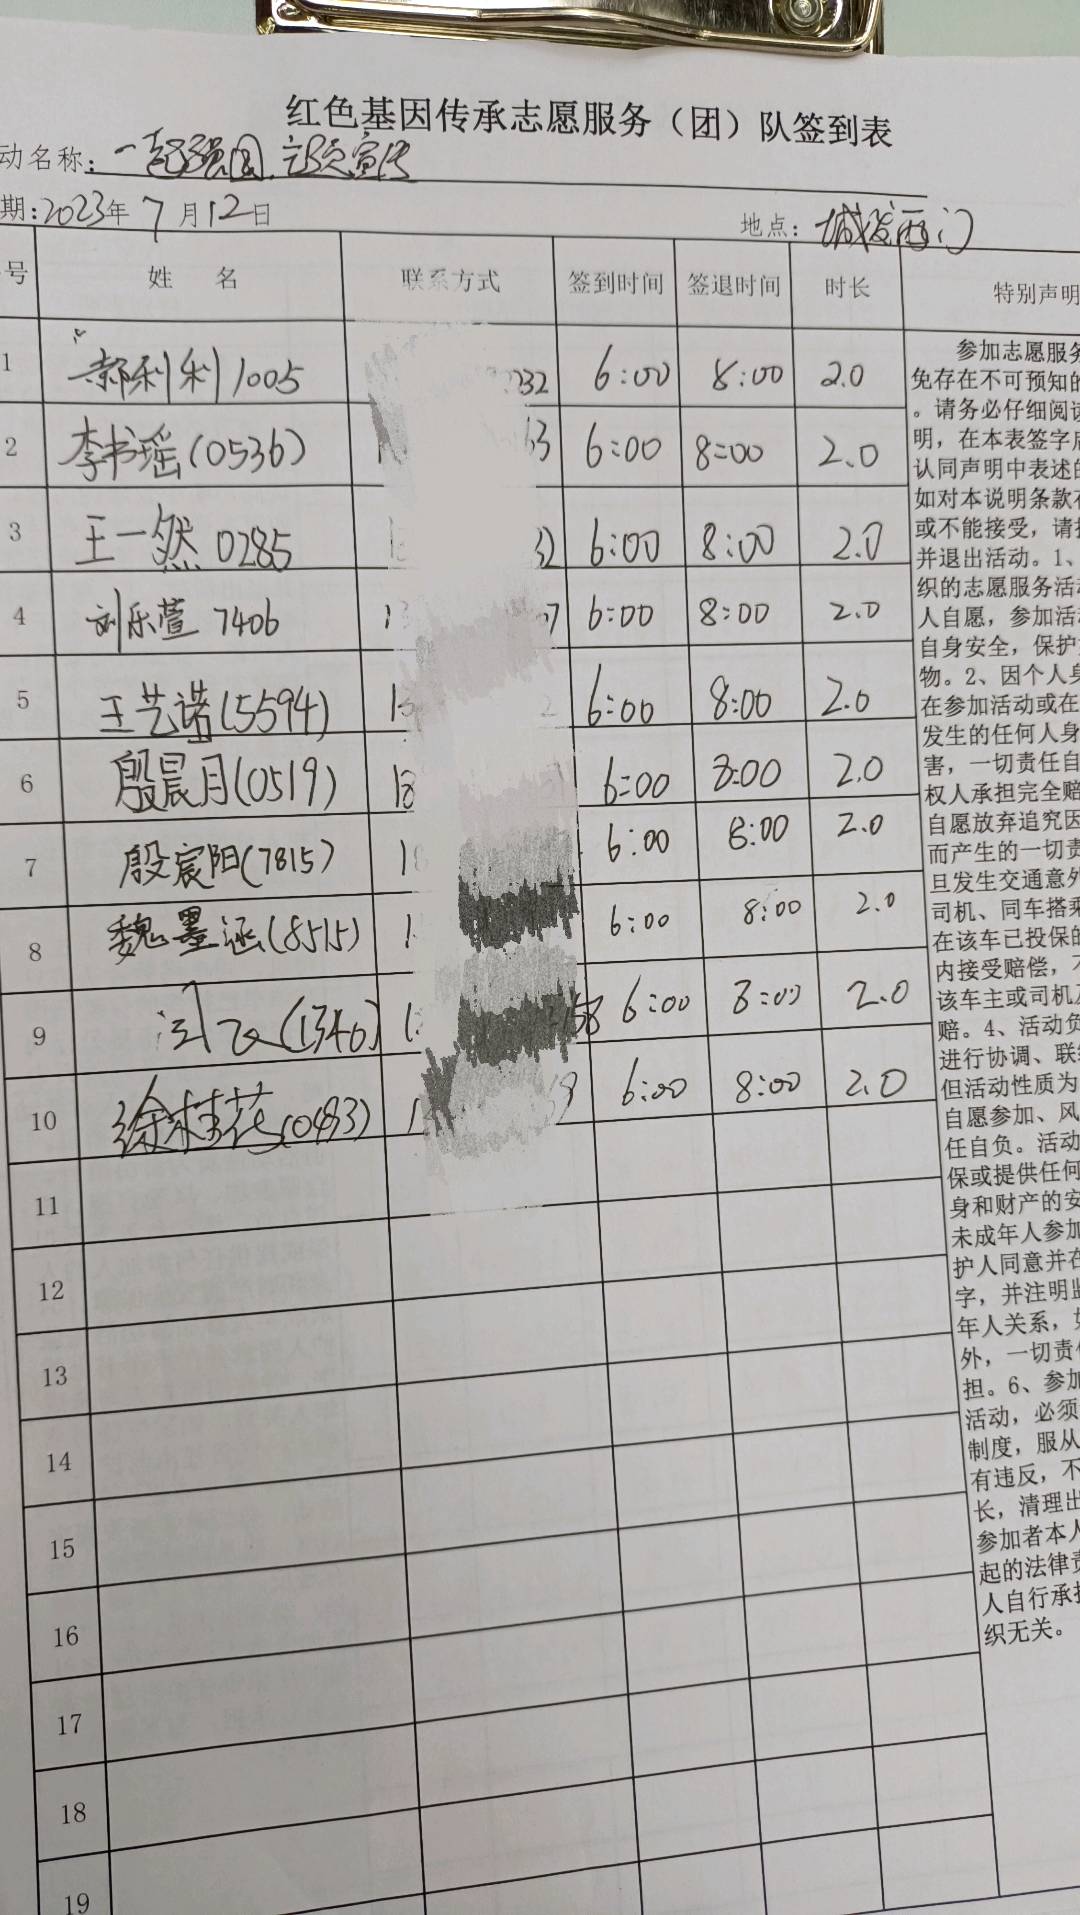 红色基因传承志愿服务（团）队签到表
动名称：一起强国 宣传
期：2023年7月12日 地点：城发西门
号 姓 名 联系方式 签到时间 签退时间 时长 特别声明
1 郝利利1005 232 6:00 8:00 2.0
2 李书瑶(0536) 63 6:00 8:00 2.0
3 王一然 0285 32 6:00 8:00 2.0
4 刘乐萱 7406 13 07 6:00 8:00 2.0
5 王艺诺(5594) 13 2 6:00 8:00 2.0
6 殷晨月(0519) 18 6:00 8:00 2.0
7 殷宸阳(7815) 18 6:00 8:00 2.0
8 魏墨涵(8515) 1 6:00 8:00 2.0
9 (1346) 1 158 6:00 8:00 2.0
10 徐桂花(0483) 1 69 6:00 8:00 2.0
11
12
13
14
15
16
17
18
19
参加志愿服务
免存在不可预知的
。请务必仔细阅读
明，在本表签字后
认同声明中表述的
如对本说明条款有
或不能接受，请
并退出活动。1、
织的志愿服务活动
人自愿，参加活动
自身安全，保护
物。2、因个人身
在参加活动或在
发生的任何人身
害，一切责任自
权人承担完全赔
自愿放弃追究因
而产生的一切责
旦发生交通意外
司机、同车搭乘
在该车已投保的
内接受赔偿，不
该车主或司机及
赔。4、活动负
进行协调、联络
但活动性质为
自愿参加、风
任自负。活动
保或提供任何
身和财产的安
未成年人参加
护人同意并在
字，并注明监
年人关系，如
外，一切责任
担。6、参加
活动，必须
制度，服从
有违反，不
长，清理出
参加者本人
起的法律责
人自行承担
织无关。